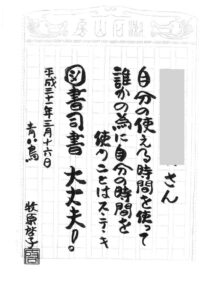 さん
自分の使える時間を使って
誰かの為に自分の時間を
使うことはステキ
図書司書 大丈夫!。
平成三十一年三月十六日
青い鳥
牧原